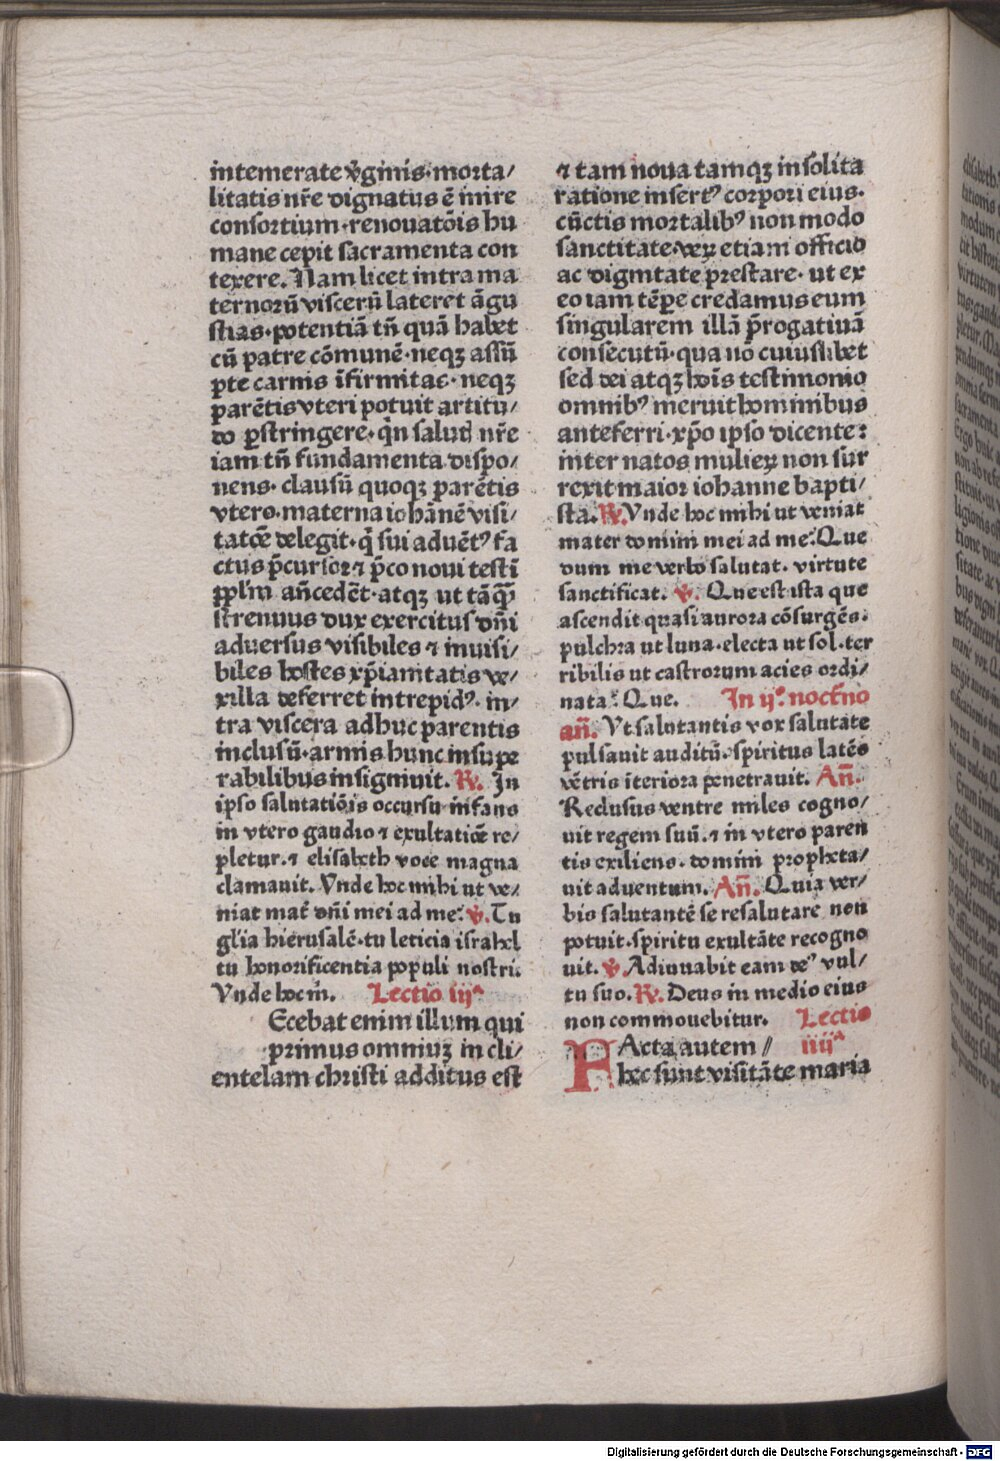 intemerate v̊ginis·morta/
litatis nr̃e dignatus ẽ inire
consortium·renouatõis hu
mane cepit sacramenta con
texere. Nam licet intra ma
ternorũ viscerũ lateret ãgu
stias·potentiã tñ quã habet
cũ patre cõmunẽ·neqꝫ assũ
pte carnis ĩfirmitas·neqꝫ
parẽtis vteri potuit artitu/
do ꝑstringere·qͥn saluti nr̃e
iam tñ fundamenta dispo/
nens·clausũ quoqꝫ parẽtis
vtero·materna iohãnẽ visi/
tatõe delegit·q̃ sui aduẽtꝰ fa
ctus p̃cursor ⁊ p̃co noui testĩ
pp̃lm̃ añcedẽt·atqꝫ ut tãqͣꝫ
strenuus dux exercitus dñi
aduersus visibiles ⁊ inuisi/
biles hostes xp̃ianitatis ve/
xilla deferret intrepidꝰ·in/
tra viscera adhuc parentis
inclusũ·armis hunc insupe
rabilibus insigniuit. ℟. In
ipso salutatiõis occursu infans
in vtero gaudio ⁊ exultatiõe re/
pletur·⁊ elisabeth voce magna
clamauit. Vnde hoc mihi ut ve/
niat mat̃ dñi mei ad me. ℣. Tu
gl̃ia hierusalẽ·tu leticia israhel
tu honorificentia populi nostri.
Vnde hoc m̃. Lectio iijᵃ
Ecebat enim illum qui
primus omniuꝫ in cli/
entelam christi additus est
⁊ tam noua tamqꝫ insolita
ratione insertꝰ corpori eius·
cũctis mortalibꝰ non modo
sanctitate·veꝝ etiam officio
ac dignitate prestare· ut ex
eo iam tẽpe credamus eum
singularem illã p̃rogatiuã
consecutũ·qua nõ cuiuslibet
sed dei atqꝫ hoĩs testimonio
omnibꝰ meruit hominibus
anteferri·xp̃o ipso dicente:
inter natos mulieꝝ non sur
rexit maior iohanne bapti/
sta. ℟. Vnde hoc mihi ut veniat
mater domini mei ad me. Que
dum me verbo salutat· virtute
sanctificat. ℣. Que est ista que
ascendit quasi aurora cõsurgẽs·
pulchra ut luna·electa ut sol·ter
ribilis ut castrorum acies ordi/
nata. Que. In ijᵒ noct̃no
añ. Vt salutantis vox salutate
pulsauit auditũ·spiritus latẽs
vẽtris ĩteriora penetrauit. Añ.
Reclusus ventre miles cogno/
uit regem suũ·⁊ in vtero paren
tis exiliens·domini propheta/
uit aduentum. Añ. Quia ver/
bis salutantẽ se resalutare non
potuit·spiritu exultãte recogno
uit. ℣ Adiuuabit eam deꝰ vul/
tu suo. ℟. Deus in medio eius
non commouebitur. Lectio
FActa autem // iiijᵃ
hec sunt visitãte maria
Digitalisierung gefördert durch die Deutsche Forschungsgemeinschaft - DFG